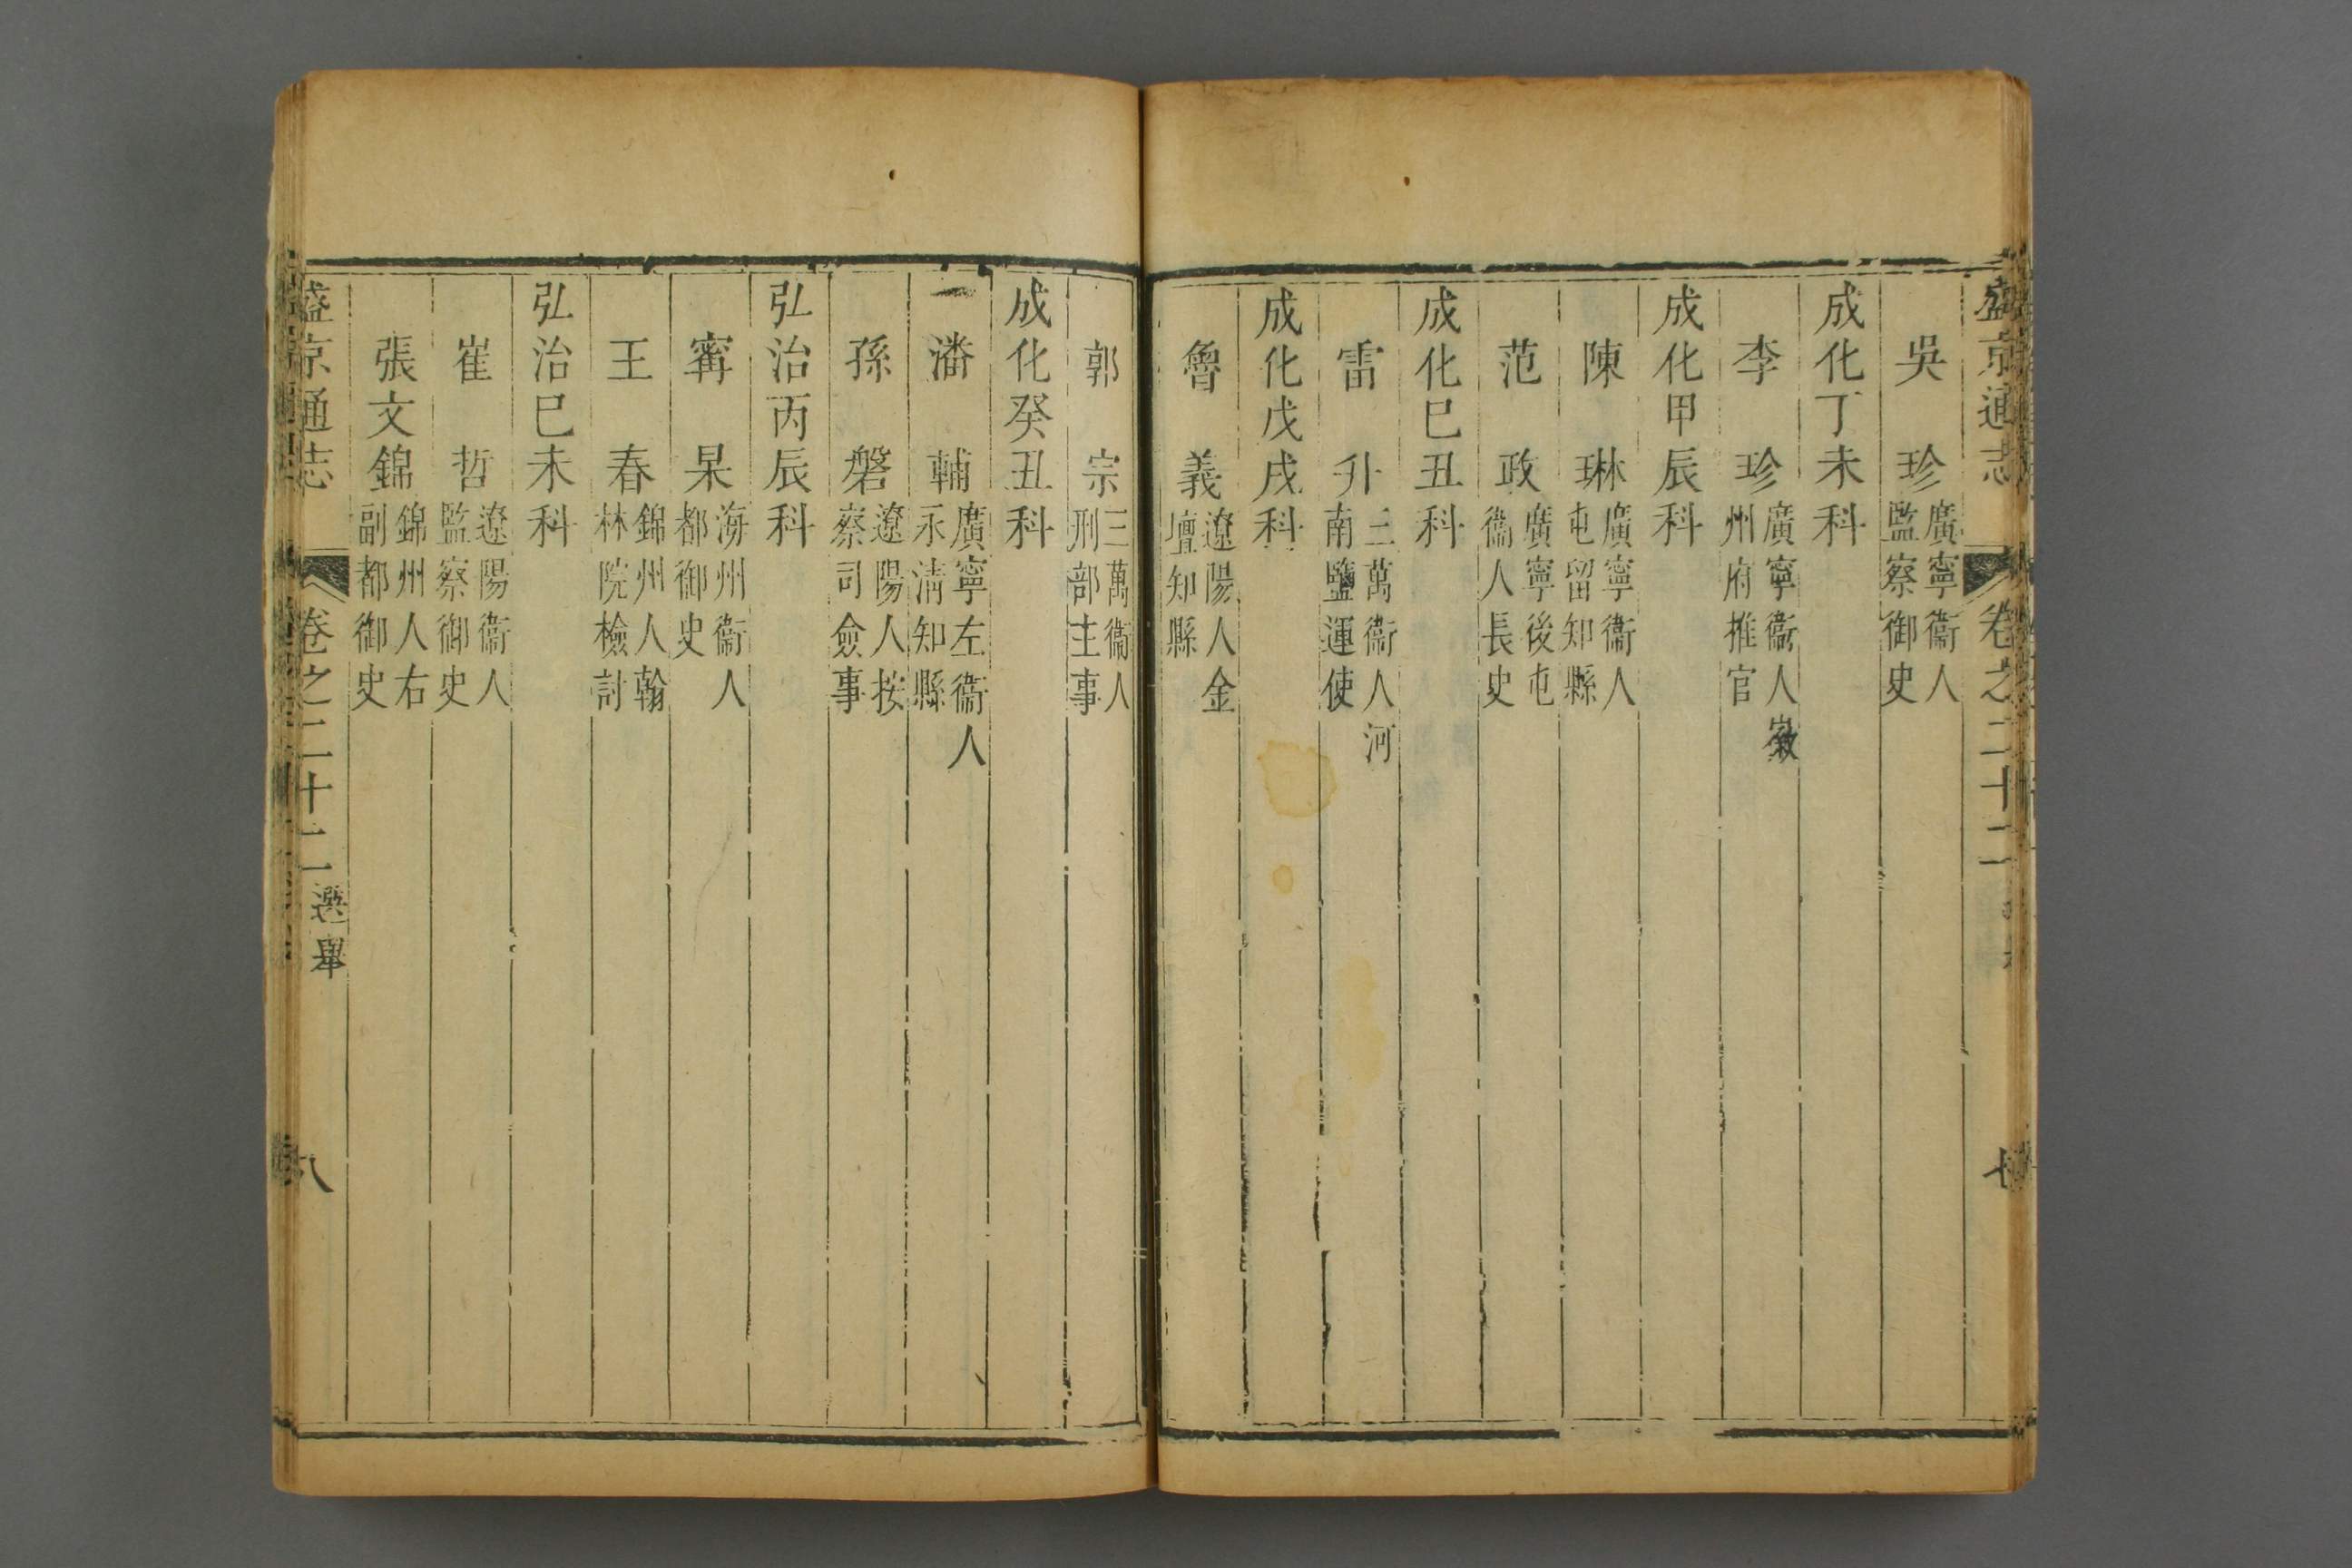 盛京通志 卷之二十二 七
吳 珍 廣寧衞人監察御史
成化丁未科
李 珍 廣寧衞人徽州府推官
成化甲辰科
陳 琳 廣寧衞人屯留知縣
范 政 廣寧後屯衞人長史
成化巳丑科
雷 升 三萬衞人河南鹽運使
成化戊戌科
魯 義 遼陽人金壇知縣
郭 宗 三萬衞人刑部主事
成化癸丑科
一潘 輔 廣寧左衞人永清知縣
孫 磐 遼陽人按察司僉事
弘治丙辰科
寗 杲 海州衞人都御史
王 春 錦州人翰林院檢討
弘治巳未科
崔 哲 遼陽衞人監察御史
張文錦 錦州人右副都御史
盛京通志 卷之二十二 選舉 八